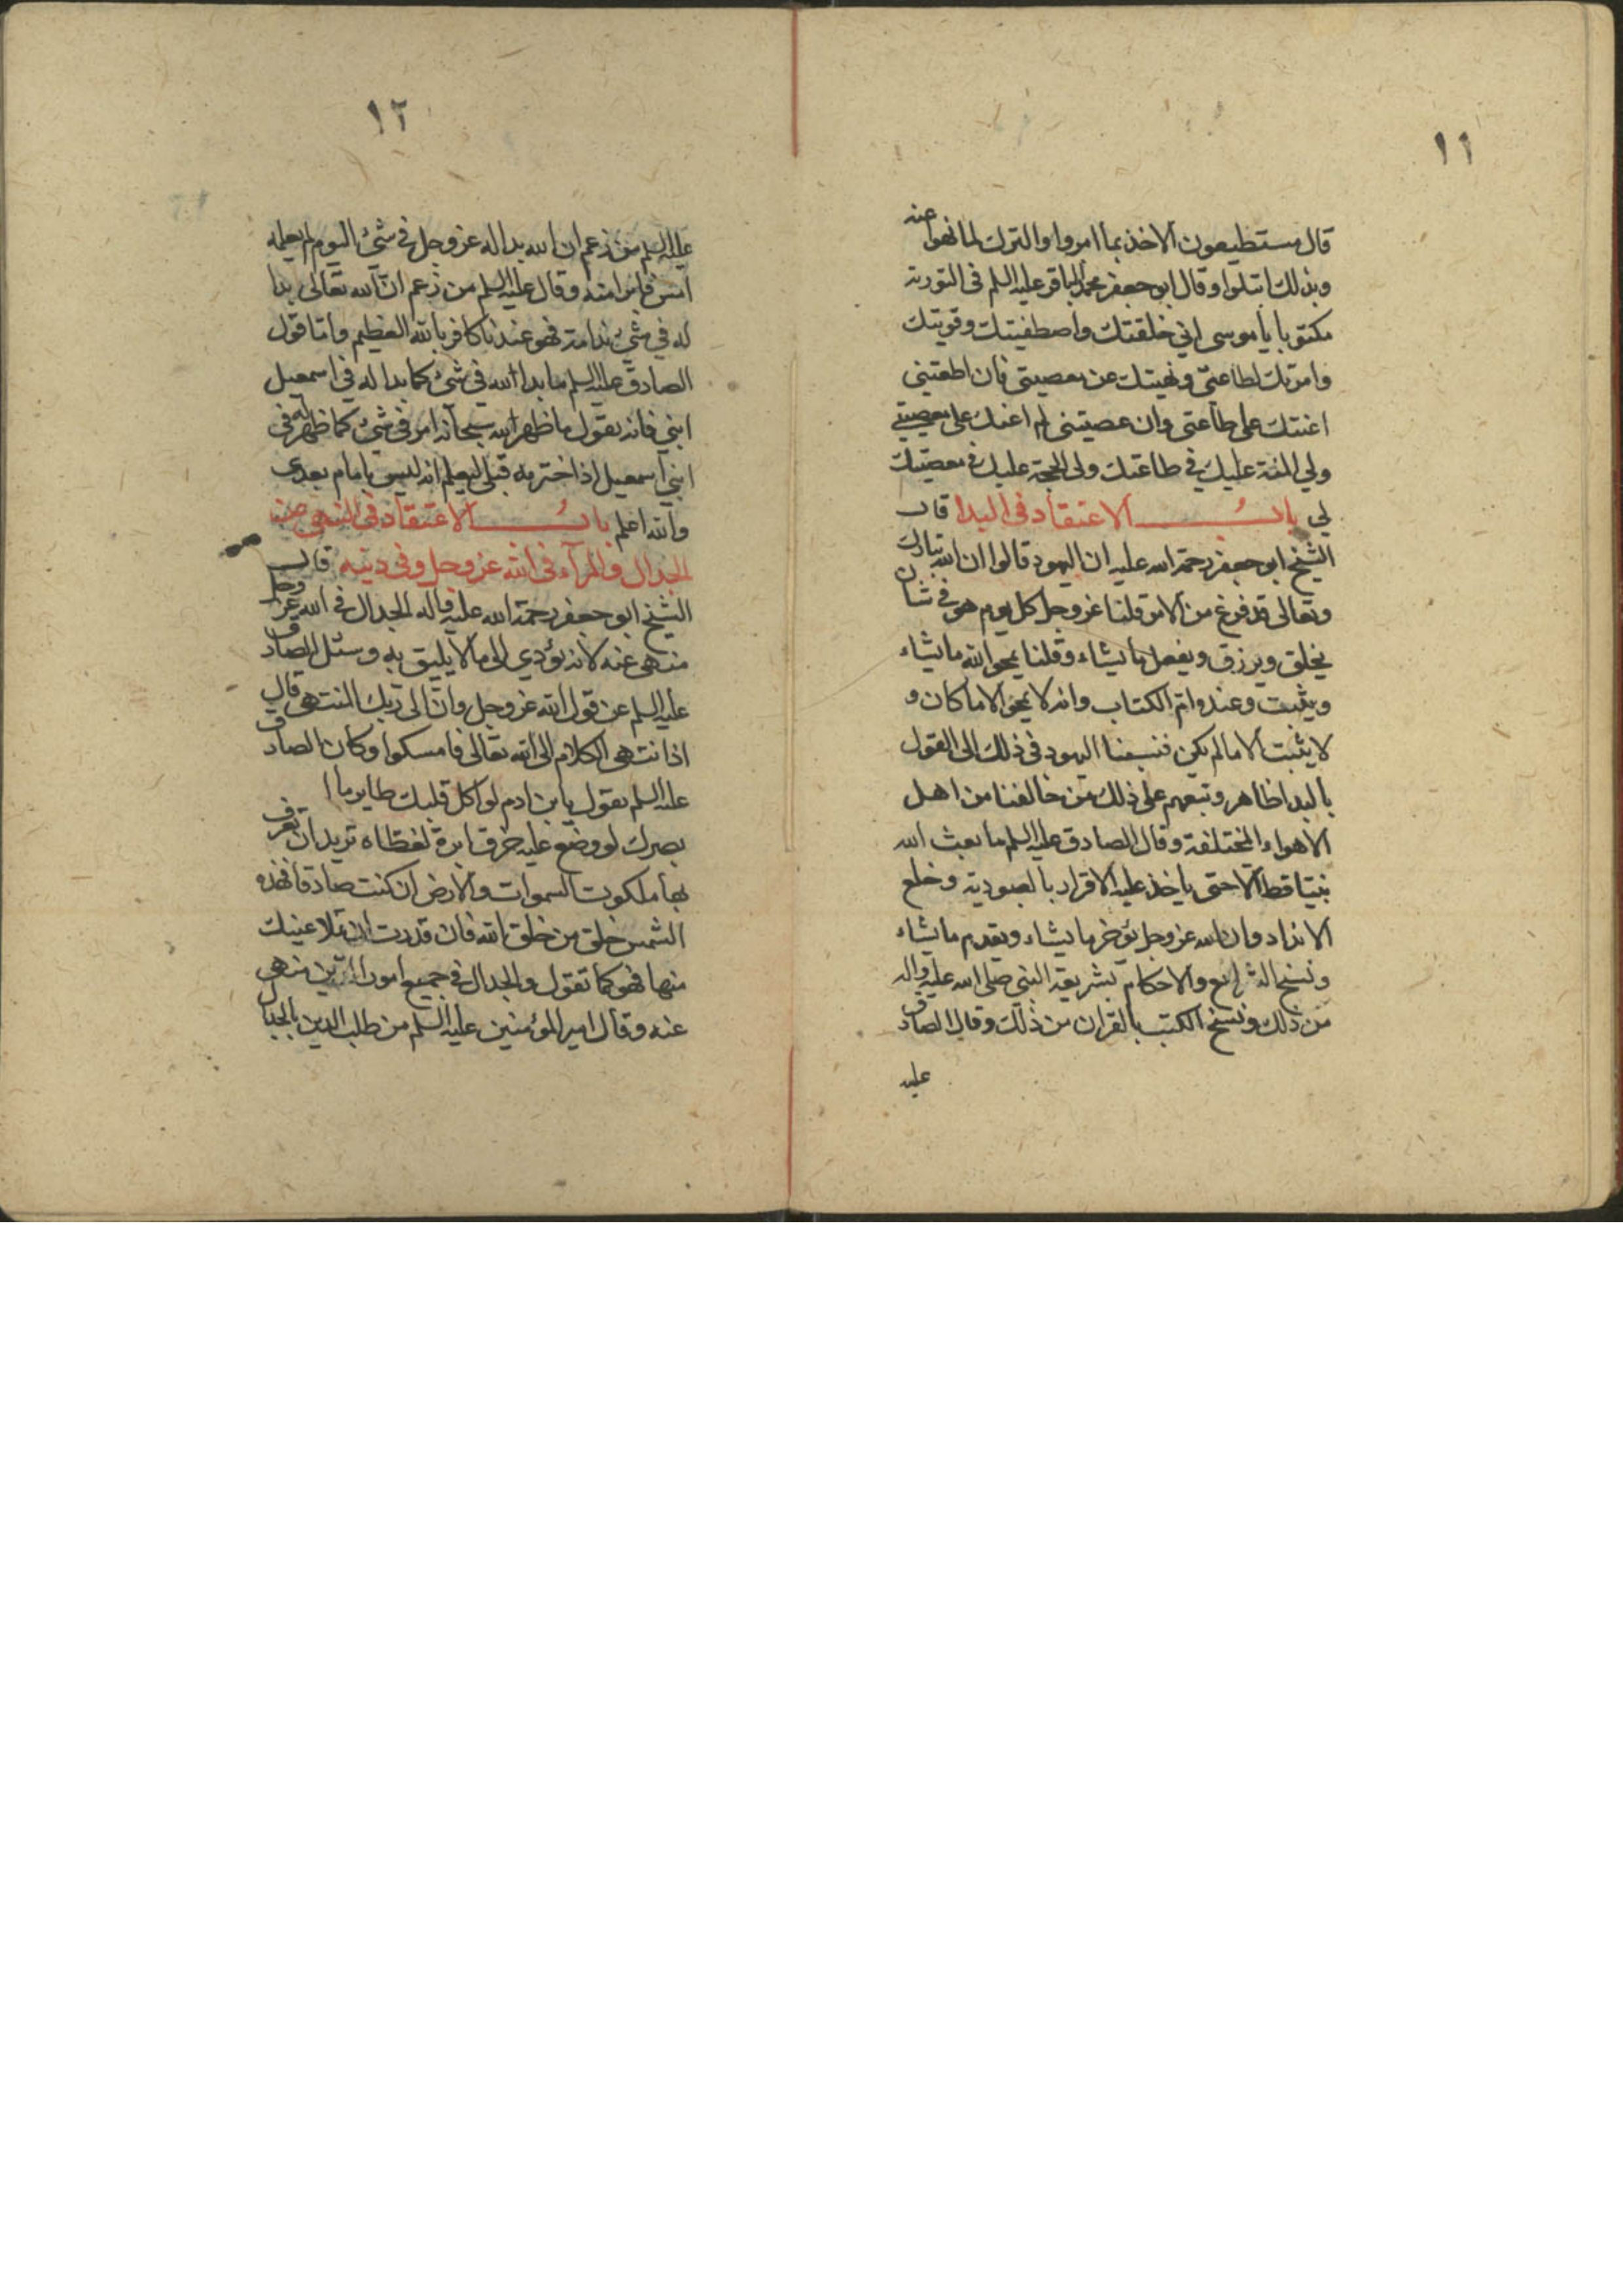 ١١
قال مستطيعون الاخذ بما امروا والترك لما نهوا عنه
وبذلك ابتلوا وقال ابو جعفر محمد الباقر عليه السلم فى التورية
مكتوبا يا موسى اني خلقتك واصطفيتك وقويتك
وامرتك بطاعتي ونهيتك عن معصيتى فان اطعتنى
اعنتك على طاعتى وان عصيتنى لم اعنك على معصيتي
ولي المنة عليك في طاعتك ولى الحجة عليك في معصيتك
لي باب الاعتقاد فى البدا قال
الشيخ ابو جعفر رحمة الله عليه ان اليهود قالوا ان الله تبارك
وتعالى قد فرغ من الامر قلنا عز وجل كل يوم هو في شان
يخلق ويرزق ويفعل ما يشاء وقلنا يمحو الله ما يشاء
ويثبت وعنده ام الكتاب وانه لا يمحو الا ما كان و
لا يثبت الا ما لم يكن فنسبنا اليهود فى ذلك الى القول
بالبدا ظاهر وتبعهم على ذلك من خالفنا من اهل
الاهواء المختلفة وقال الصادق عليه السلم ما بعث الله
نبيا قط الا حتى ياخذ عليه الاقرار بالعبودية وخلع
الانداد وان الله عز وجل يؤخر ما يشاء ويقدم ما يشاء
ونسخ الشرايع والاحكام بشريعة النبي صلى الله عليه واله
من ذلك ونسخ الكتب بالقران من ذلك وقال الصادق
عليه
١٢
عليه السلم من زعم ان الله بدا له عز وجل في شئ اليوم لم يعلمه
امس فابرا منه وقال عليه السلم من زعم ان الله تعالى بدا
له في شئ ندامة فهو عندنا كافر بالله العظيم واما قول
الصادق عليه السلم ما بدا الله في شئ كما بدا له في اسمعيل
ابني فانه يقول ما ظهر الله سبحانه امر فى شئ كما ظهر له فى
ابني اسمعيل اذا اخترمه قبلى ليعلم انه ليس بامام بعدى
والله اعلم باب الاعتقاد فى النهى عن
الجدال والمرآء فى الله عز وجل وفى دينه قال
الشيخ ابو جعفر رحمة الله عليه واله الجدال في الله عز وجل
منهى عنه لانه يؤدي الى ما لا يليق به وسئل الصادق
عليه السلم عن قول الله عز وجل وان الى ربك المنتهى قال
اذا انتهى الكلام الى الله تعالى فامسكوا وكان الصادق
عليه السلم يقول يابن ادم لو اكل قلبك طاير ما
بصرك لو وضع عليه خرق ابرة لغطاه تريد ان تعرف
بها ملكوت السموات والارض ان كنت صادقا فهذه
الشمس خلق من خلق الله فان قدرت ان تملا عينك
منها فهو كما تقول والجدال في جميع امور الدين منهى
عنه وقال امير المؤمنين عليه السلم من طلب الدين بالجدال